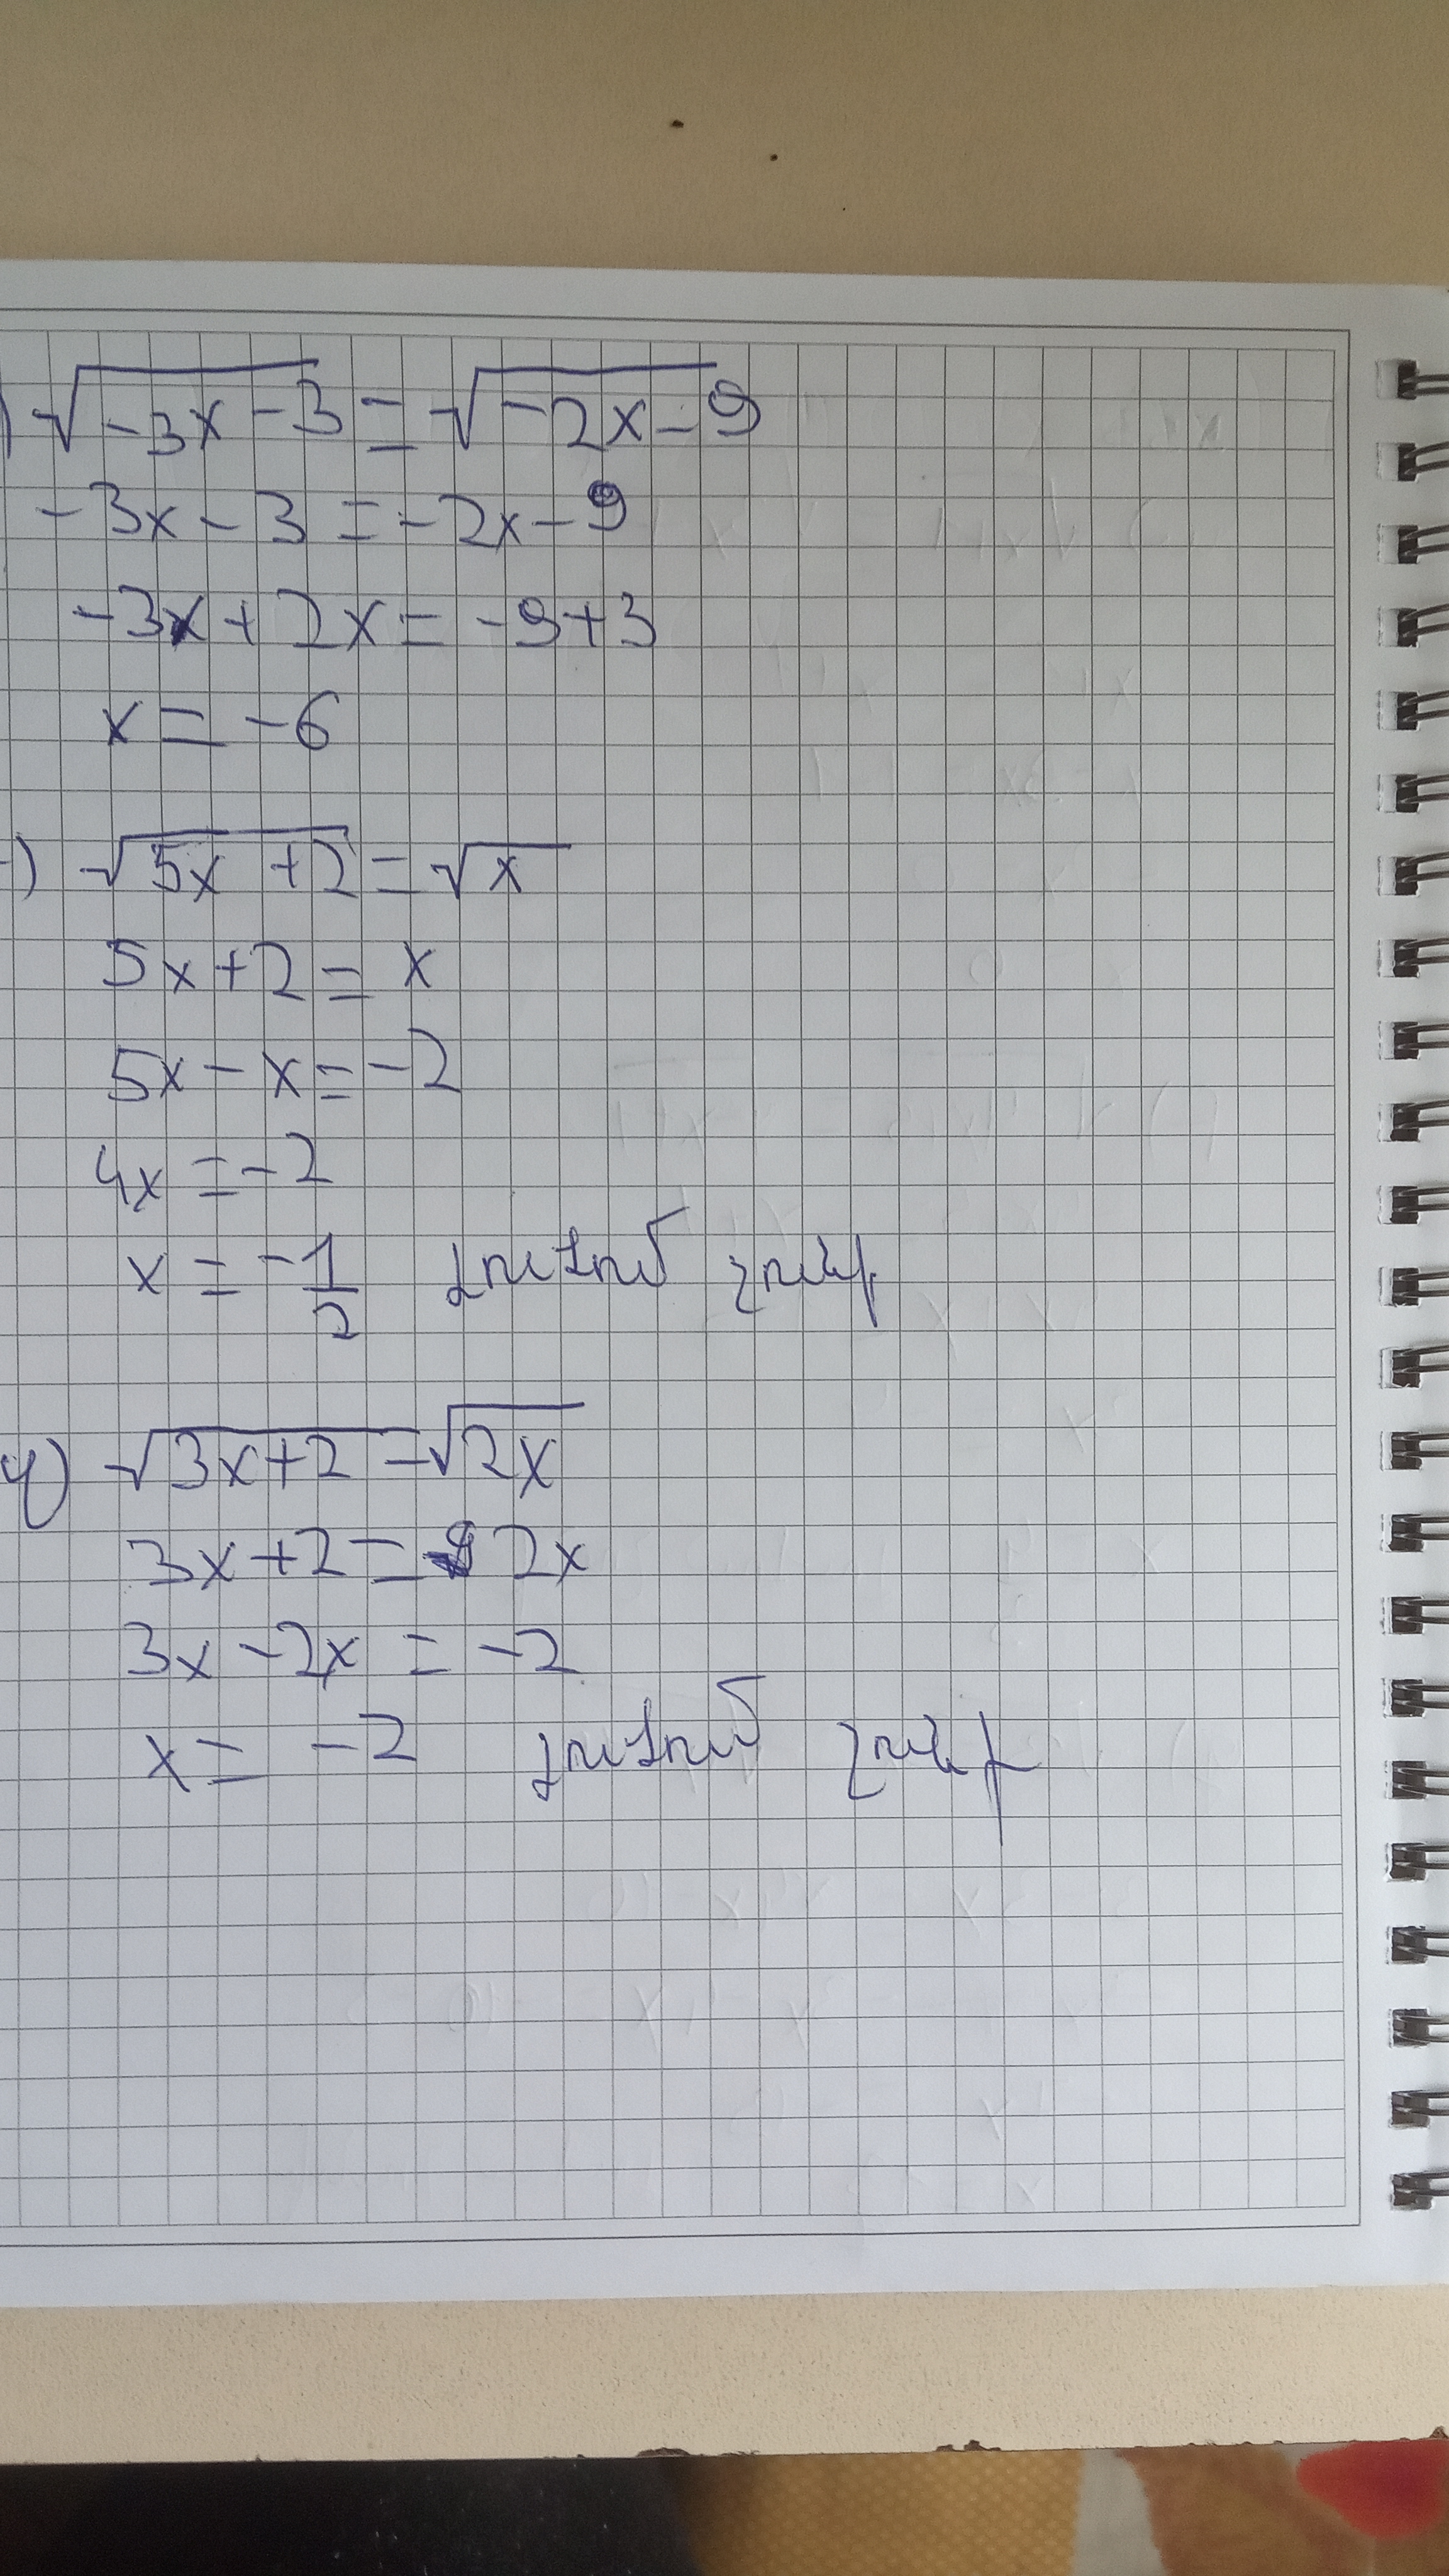 ) √-3x-3 = √-2x-9
-3x-3 = -2x-9
-3x+2x = -9+3
x = -6
) √5x+2 = √x
5x+2 = x
5x-x = -2
4x = -2
x = -1/2 լուծում չունի
վ) √3x+2 = √2x
3x+2 = 2x
3x-2x = -2
x = -2 լուծում չունի